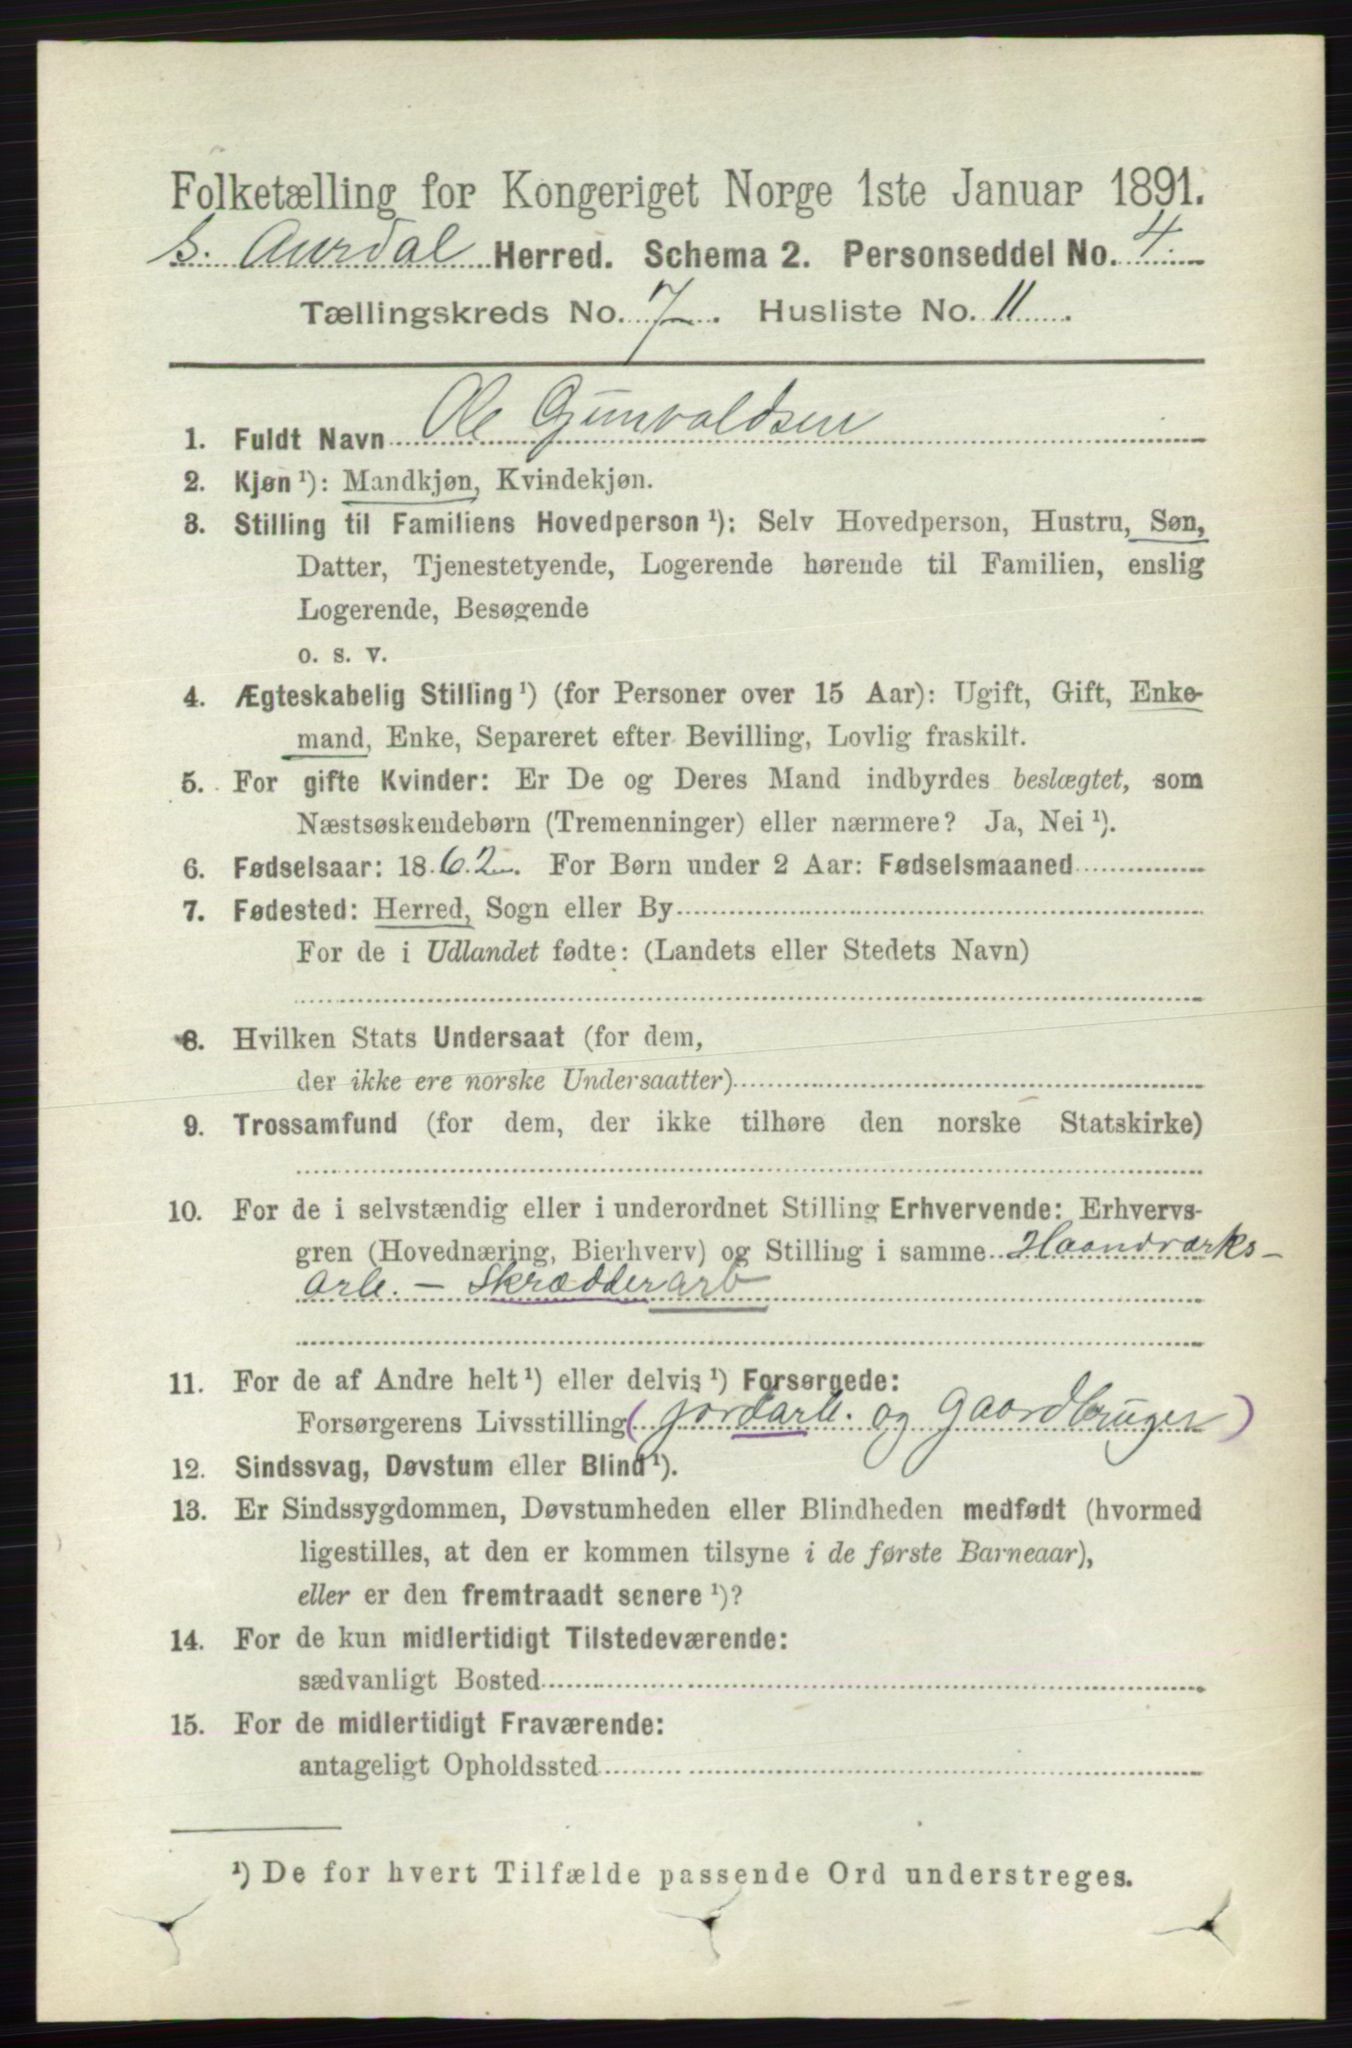 Folketælling for Kongeriget Norge 1ste Januar 1891.
S. Aurdal Herred. Schema 2. Personseddel No. 4.
Tællingskreds No. 7. Husliste No. 11.
1. Fuldt Navn Ole Gunvaldsen
2. Kjøn ¹): Mandkjøn, Kvindekjøn.
3. Stilling til Familiens Hovedperson ¹): Selv Hovedperson, Hustru, Søn,
Datter, Tjenestetyende, Logerende hørende til Familien, enslig
Logerende, Besøgende
o. s. v.
4. Ægteskabelig Stilling ¹) (for Personer over 15 Aar): Ugift, Gift, Enke-
mand, Enke, Separeret efter Bevilling, Lovlig fraskilt.
5. For gifte Kvinder: Er De og Deres Mand indbyrdes beslægtet, som
Næstsøskendebørn (Tremenninger) eller nærmere? Ja, Nei ¹).
6. Fødselsaar: 1862. For Børn under 2 Aar: Fødselsmaaned
7. Fødested: Herred, Sogn eller By
For de i Udlandet fødte: (Landets eller Stedets Navn)
8. Hvilken Stats Undersaat (for dem,
der ikke ere norske Undersaatter)
9. Trossamfund (for dem, der ikke tilhøre den norske Statskirke)
10. For de i selvstændig eller i underordnet Stilling Erhvervende: Erhvervs-
gren (Hovednæring, Bierhverv) og Stilling i samme Haandværks-
arb. - Skrædderarb
11. For de af Andre helt ¹) eller delvis ¹) Forsørgede:
Forsørgerens Livsstilling (jordarb. og Gaardbruger)
12. Sindssvag, Døvstum eller Blind ¹).
13. Er Sindssygdommen, Døvstumheden eller Blindheden medfødt (hvormed
ligestilles, at den er kommen tilsyne i de første Barneaar),
eller er den fremtraadt senere ¹)?
14. For de kun midlertidigt Tilstedeværende:
sædvanligt Bosted
15. For de midlertidigt Fraværende:
antageligt Opholdssted
¹) De for hvert Tilfælde passende Ord understreges.